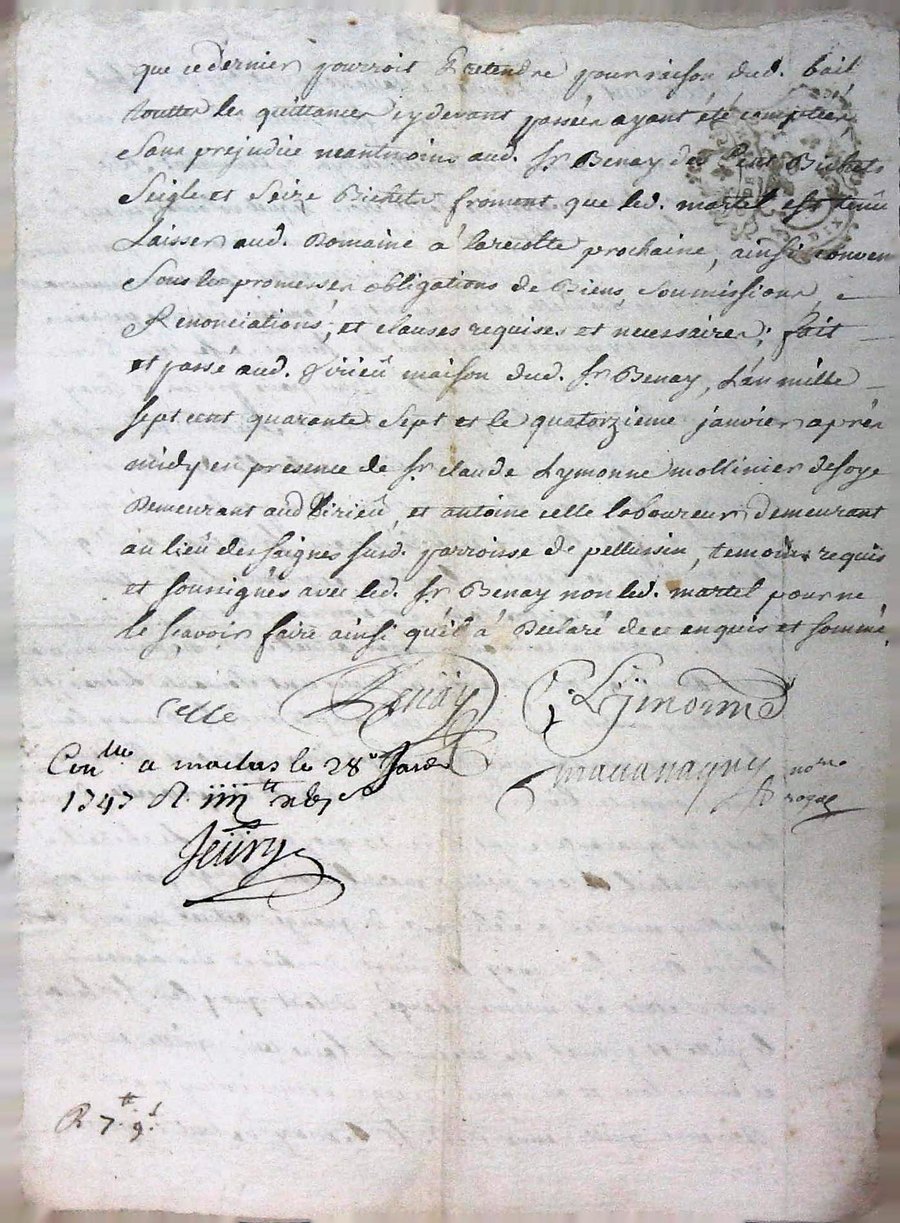 que ce dernier pourroit pretendre pour raison dud. bail
touttes les quittances cy devant passées ayant été comptées
Sans prejudice neantmoins aud. Sr. Benay des Bichets
Seigle et Seize Bichets froment que led. martel est tenû
Laisser aud. Domaine à la recolte prochaine, ainsi conven
Sous les promesses obligations de Biens, soumissions,
Renonciations, et clauses requises et necessaires; fait
et passé aud. Virieû maison dud. Sr. Benay, L'an mille
sept cent quarante sept et le quatorzieme janvier après
midy en presence de Sr. claude Lymonne mollinier de soye
Demeurant aud Virieû, et antoine celle laboureur demeurant
au lieû des saignes susd. parroisse de pellussin, temoins requis
et soussignés avec led. Sr. Benay non led. martel pour ne
le sçavoir faire ainsi qu'il à Declaré de ce enquis et sommé.
celle Benaÿ C. Lÿmonne
Conlle a maclas le 28e Janv
1747 R. iiii tt
nore
royal
R 7tt 9s